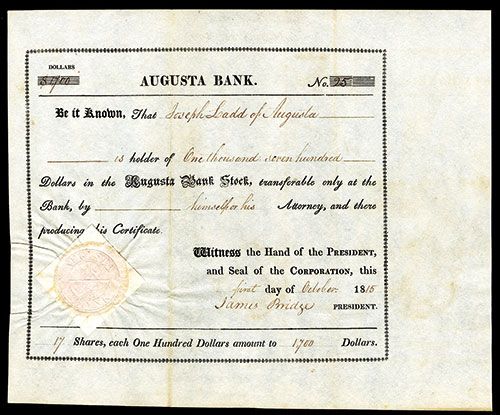 DOLLARS
$1700
AUGUSTA BANK.
No. 25
Be it Known, That Joseph Ladd of Augusta
is holder of One thousand seven hundred
Dollars in the Augusta Bank Stock, transferable only at the
Bank, by himself or his Attorney, and there
producing his Certificate.
Witness the Hand of the PRESIDENT,
and Seal of the CORPORATION, this
first day of October 1815
James Bridge PRESIDENT.
17 Shares, each One Hundred Dollars amount to 1700 Dollars.